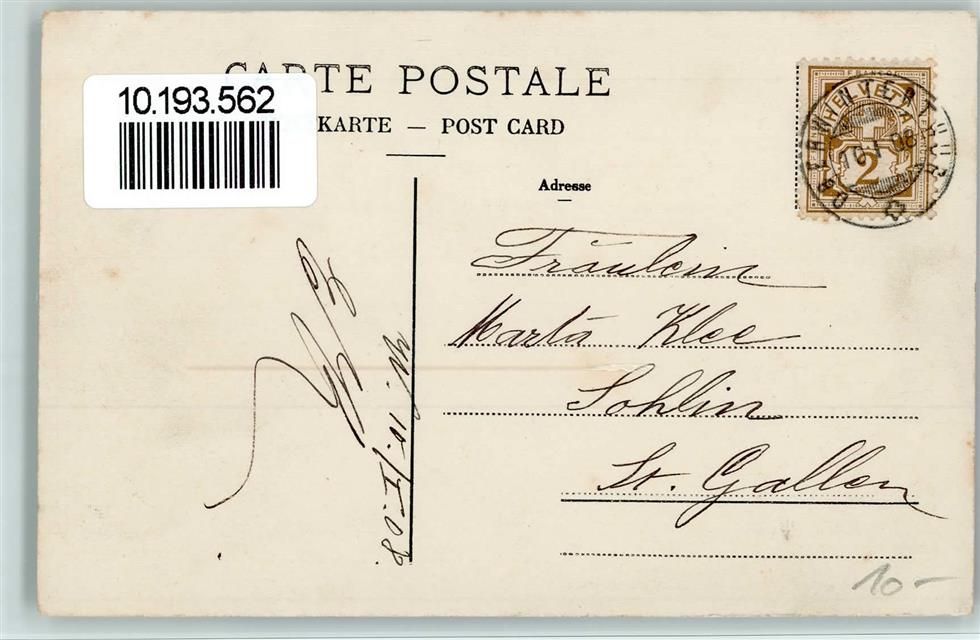 CARTE POSTALE
10.193.562
KARTE — POST CARD
Adresse
FRANCO
HELVETIA
2
10.I.08
Fräulein
Marta Klee
Sohlin
St. Gallen
10.I.08
10-